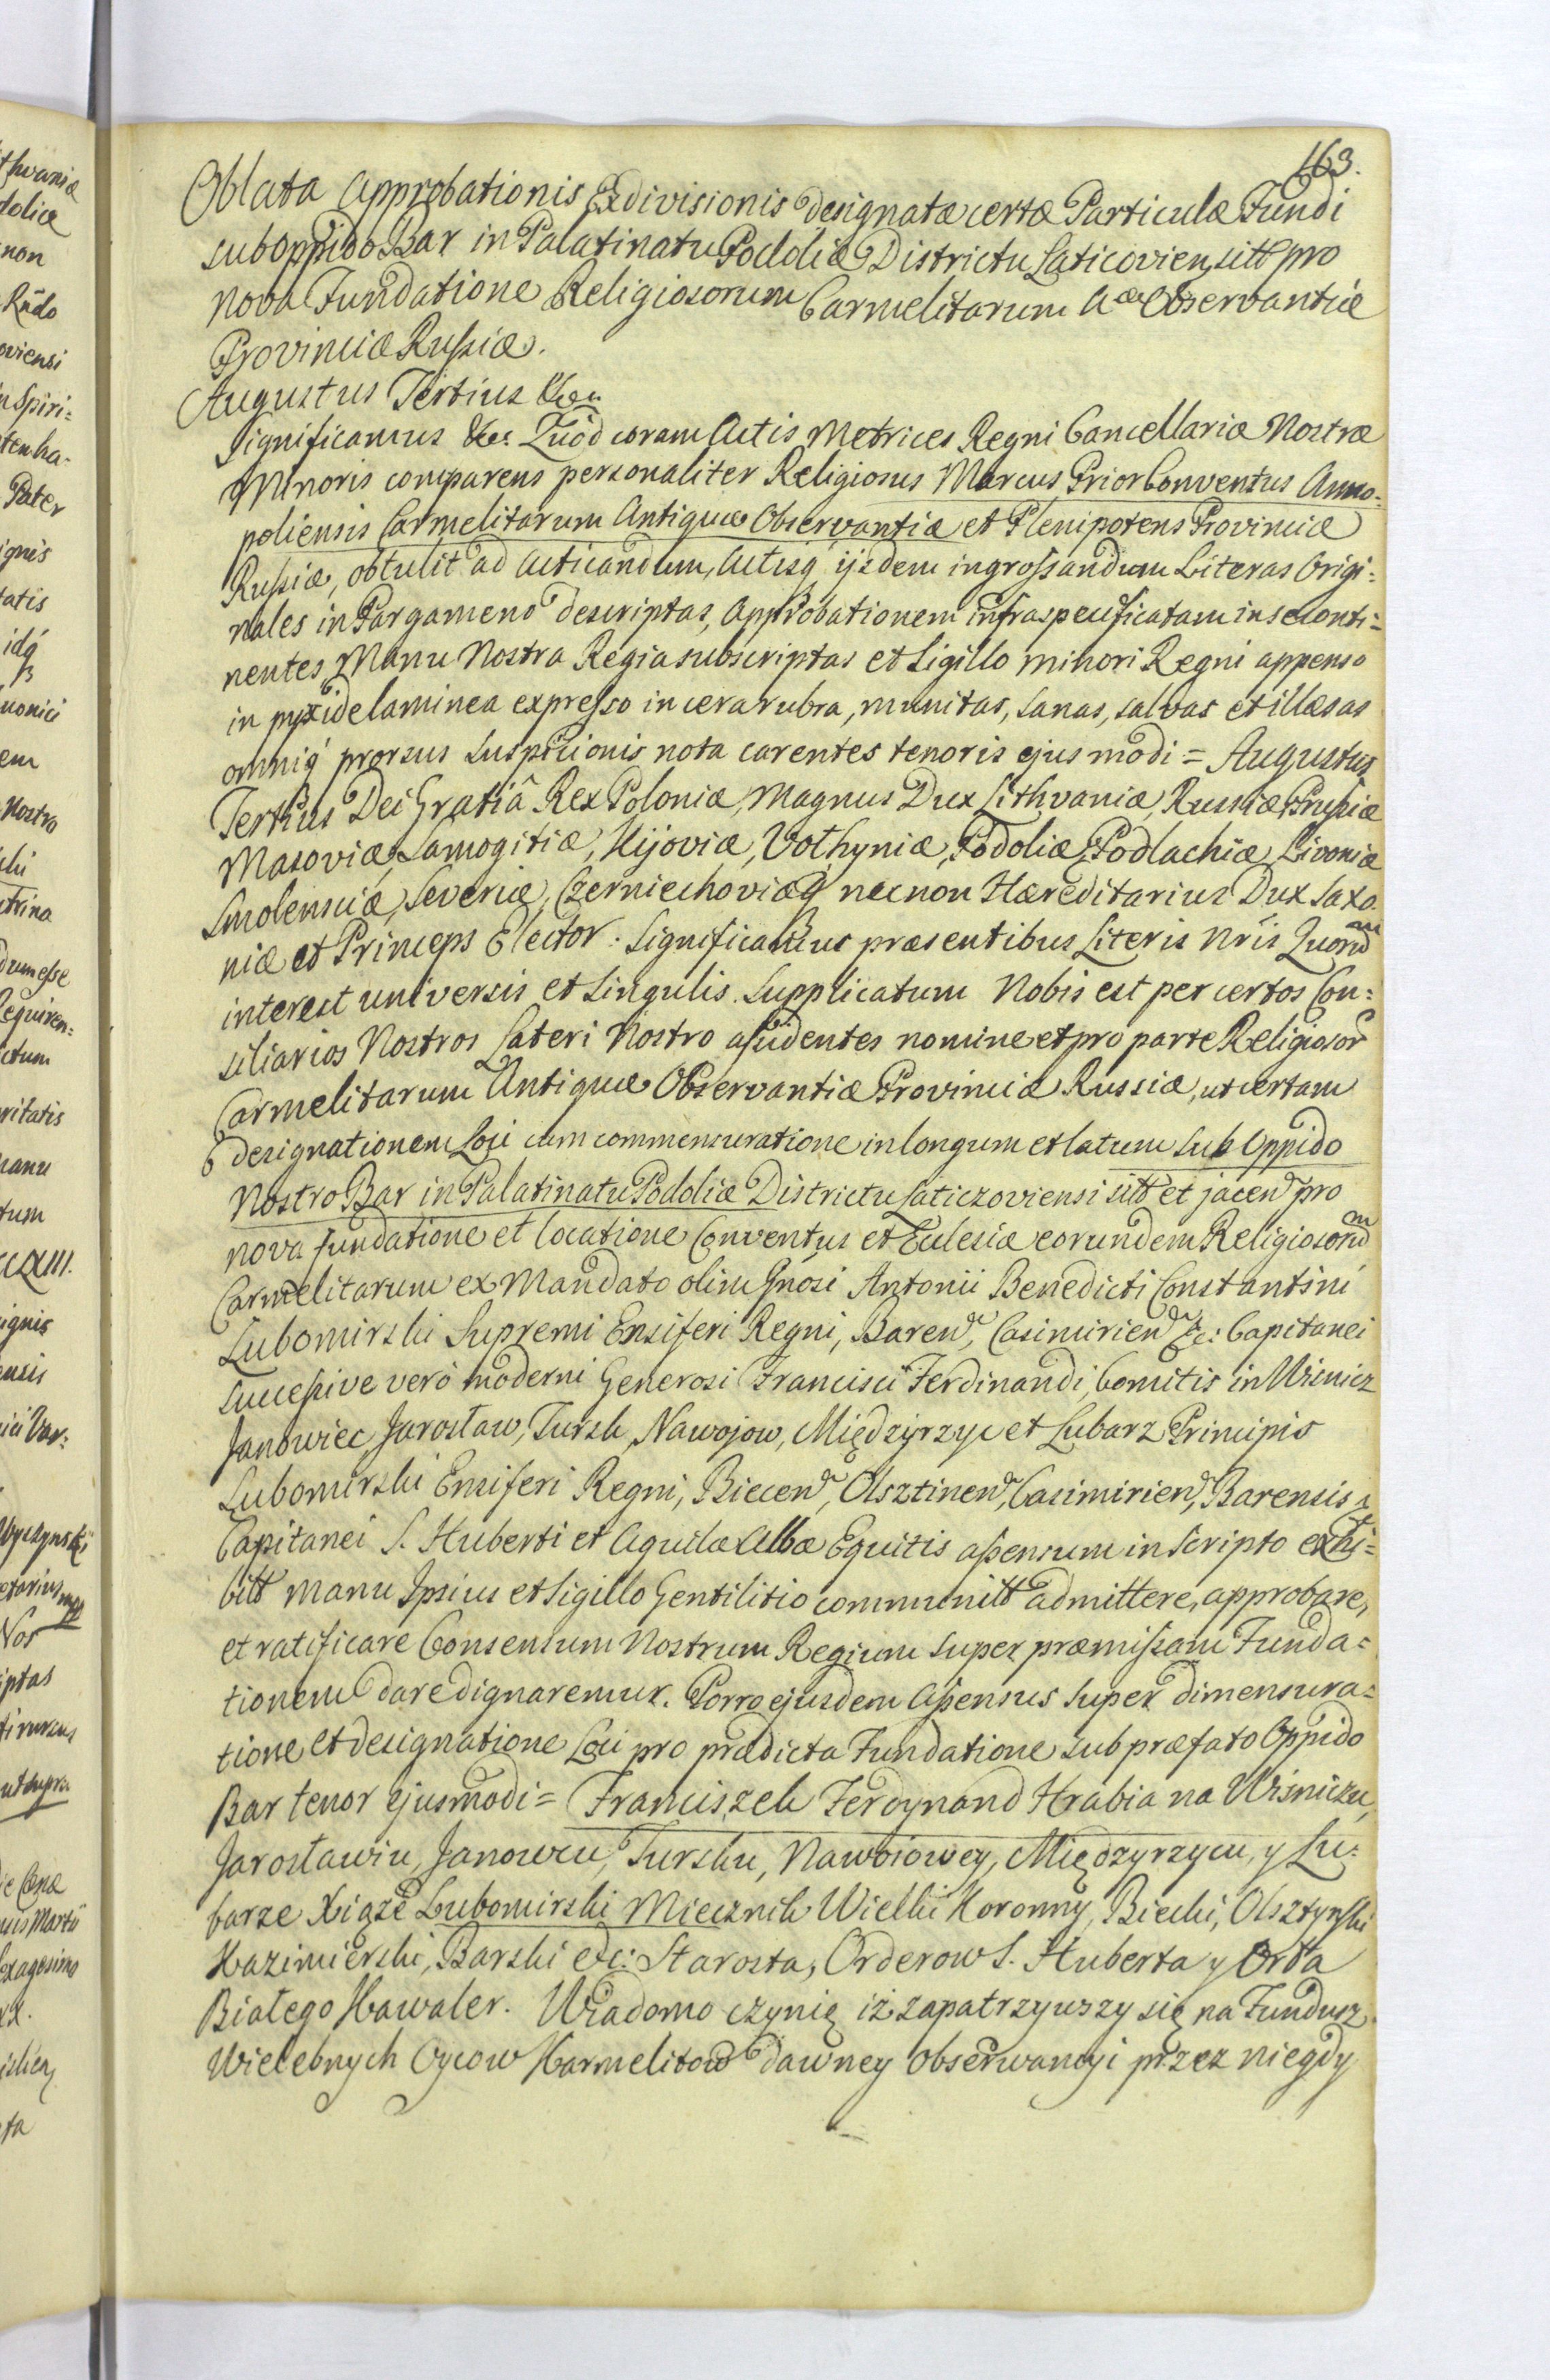 163.
Oblata Approbationis Exdivisionis designatæ certæ Particulæ Fundi
sub Oppido Bar in Palatinatu Podoliæ Districtu Laticovien, sitt pro
Nova Fundatione Religiosorum Carmelitarum Aæ Observantiæ
Provinciæ Russiæ.
Augustus Tertius &c.
Significamus &c. Quod coram Actis Metrices Regni Cancellariæ Nostræ
Minoris comparens personaliter Religiosus Marcus Prior Conventus Anno-
poliensis Carmelitarum Antiquæ Observantiæ et Plenipotens Provinciæ
Russiæ, obtulit ad Acticandum, Actisq ijsdem ingrossandum Literas Origi=
nales in Pargameno descriptas, Approbationem infraspecificatam in se conti=
nentes, Manu Nostra Regia subscriptas et Sigillo minori Regni appenso
in pyxide laminea expresso in cera rubra, munitas, sanas, salvas et illæsas
omniq prorsus suspicionis nota carentes tenoris ejusmodi = Augustus
Tertius Dei Gratiâ Rex Poloniæ, Magnus Dux Lithvaniæ, Russiæ Prussiæ
Masoviæ, Samogitiæ, Kijoviæ, Volhyniæ, Podoliæ, Podlachiæ, Livoniæ
Smolensciæ, Severiæ, Czerniechoviæq necnon Hæreditarius Dux Saxo-
niæ et Princeps Elector: Significamus præsentibus Literis Nris Quorũ
interest universis et singulis. Supplicatum Nobis est per certos Con=
siliarios Nostros Lateri Nostro assidentes nomine et pro parte Religiosor
Carmelitarum Antiquæ Observantiæ Provinciæ Russiæ, ut certam
designationem Loci cum commensuratione in longum et latum sub Oppido
Nostro Bar in Palatinatu Podoliæ Districtu Laticzoviensi sitt et jacen pro
nova fundatione et locatione Conventus et Eclesiæ eorundem Religiosorũ
Carmelitarum ex Mandato olim Gnosi Antonii Benedicti Constantini
Lubomirski Supremi Ensiferi Regni, Baren, Casimirien &c: Capitanei
successive verò moderni Generosi Francisci Ferdinandi, Comitis in Wisnicz
Janowiec, Jarosław, Tursk, Nawojow, Międzyrzyc et Lubarz Principis
Lubomirski Ensiferi Regni, Biecen, Olsztinen, Casimirien, Barensis
Capitanei S. Huberti et Aquilæ Albæ Equitis assensum in scripto exhi=
bitt manu Ipsius et Sigillo Gentilitio communitt admittere, approbare,
et ratificare Consensum Nostrum Regium super præmissam Funda=
tionem dare dignaremur. Porro ejusdem Assensus super dimensura=
tione et designatione Loci pro prædicta Fundatione sub præfato Oppido
Bar tenor ejusmodi = Franciszek Ferdynand Hrabia na Wisniczu,
Jarosławiu, Janowcu, Tursku, Nawoiowey, Międzyrzycu, y Lu=
barze Xiąze Lubomirski Miecznik Wielki Koronny, Biecki, Olsztynski
Kazimierski, Barski etc: Starosta, Orderow S. Huberta y Orła
Białego Kawaler. Wiadomo czynię iż zapatrzywszy się na Fundusz
Wielebnych Oycow Karmelitow dawney Obserwancyi przez niegdy